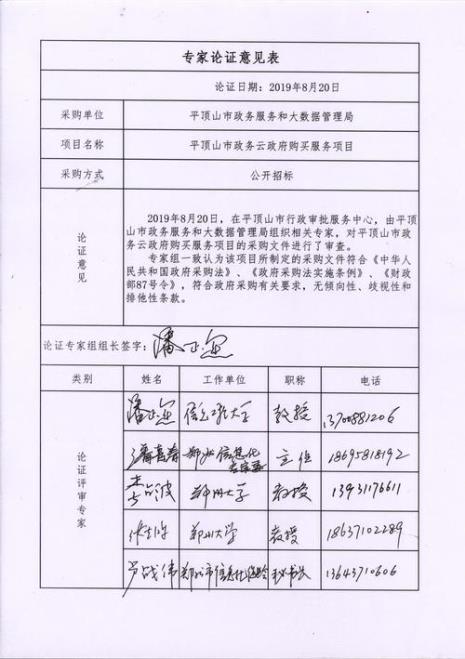 专家论证意见表
论证日期：2019年8月20日
采购单位 平顶山市政务服务和大数据管理局
项目名称 平顶山市政务云政府购买服务项目
采购方式 公开招标
论证意见
2019年8月20日，在平顶山市行政审批服务中心，由平顶
山市政务服务和大数据管理局组织相关专家，对平顶山市政
务云政府购买服务项目的采购文件进行了审查。
专家组一致认为该项目所制定的采购文件符合《中华人
民共和国政府采购法》、《政府采购法实施条例》、《财政
部87号令》，符合政府采购有关要求，无倾向性、歧视性和
排他性条款。
论证专家组组长签字：潘
类别 姓名 工作单位 职称 电话
论证评审专家
潘 信息工程大学 教授 13700881206
郑州信息化 主任 18695818192
李 郑州大学 教授 13931176611
张 郑州大学 教授 18637102289
战伟 郑州市信息化 秘书长 13643710606